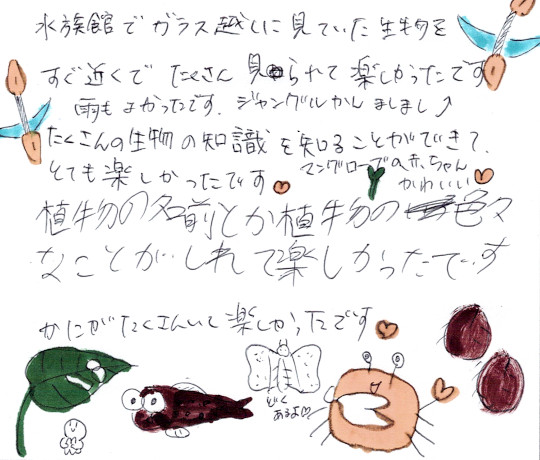 水族館でガラス越しに見ていた生物を
すぐ近くでたくさん見られて楽しかったです
雨もよかったです。ジャングルかんましまし♪
たくさんの生物の知識を知ることができて、
とても楽しかったです
マングローブの赤ちゃん
かわいい
植物の名前とか植物の色々
なことがしれて楽しかったです
かにがたくさんいて楽しかったです
どく
あるよ